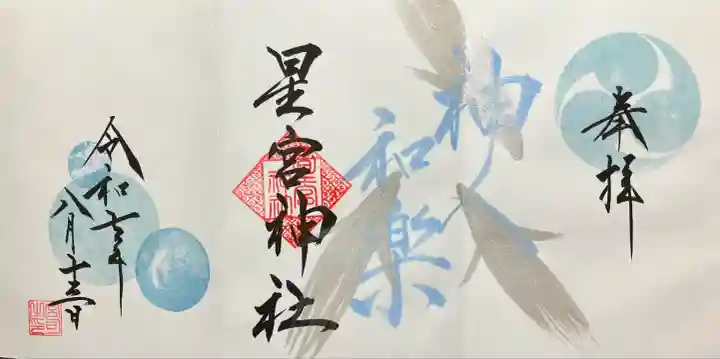 奉拝
神人
和楽
星宮神社
令和七年
八月十三日